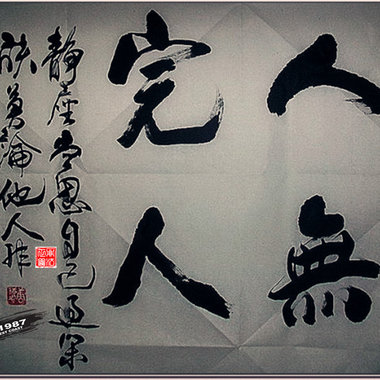 人無
完人
靜座常思自己過閑
談莫論他人非
1987